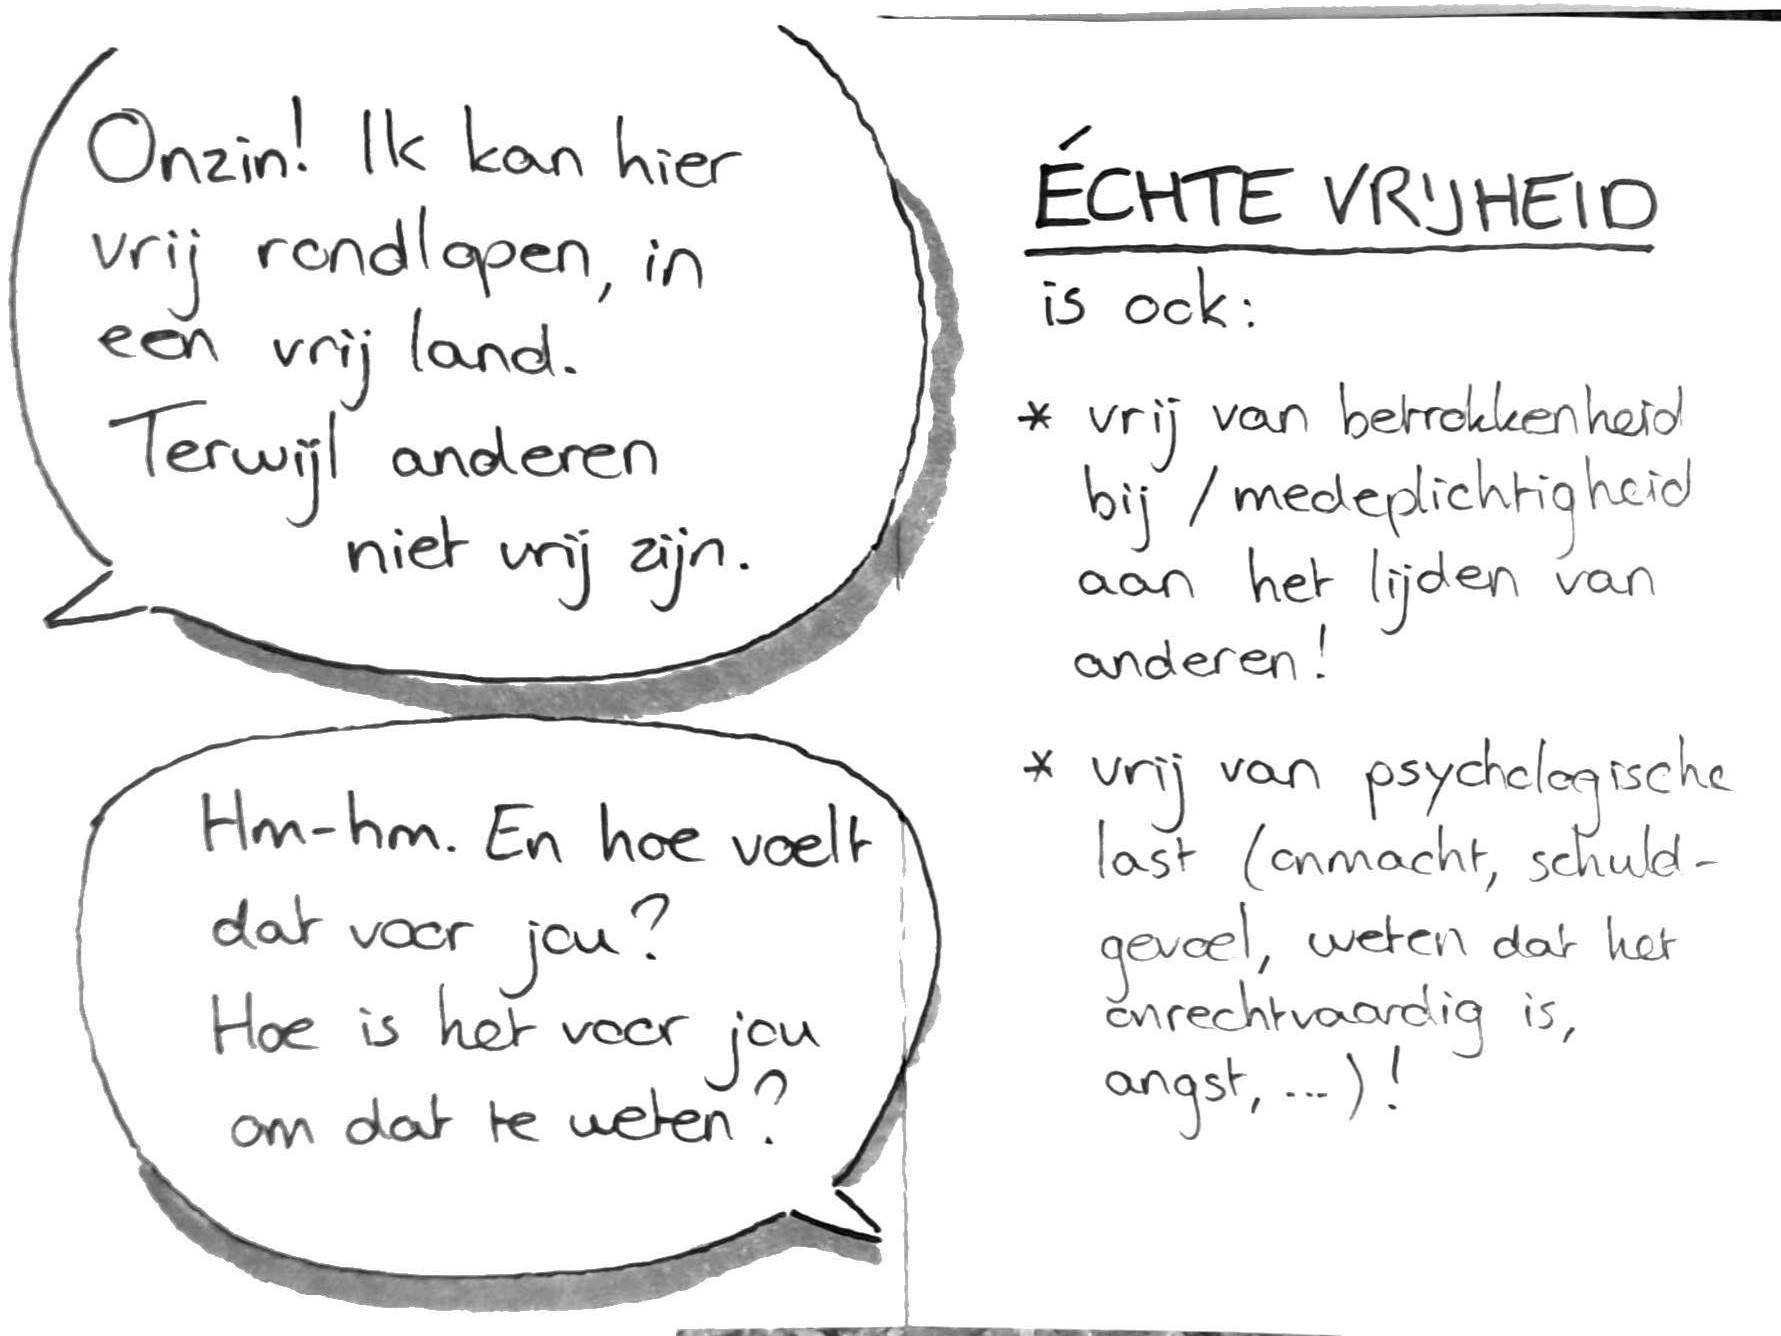 Onzin! Ik kan hier
vrij rondlopen, in
een vrij land.
Terwijl anderen
niet vrij zijn.
Hm-hm. En hoe voelt
dat voor jou?
Hoe is het voor jou
om dat te weten?
ÉCHTE VRIJHEID
is ook:
* vrij van betrokkenheid
bij / medeplichtigheid
aan het lijden van
anderen!
* vrij van psychologische
last (onmacht, schuld-
gevoel, weten dat het
onrechtvaardig is,
angst, ...)!